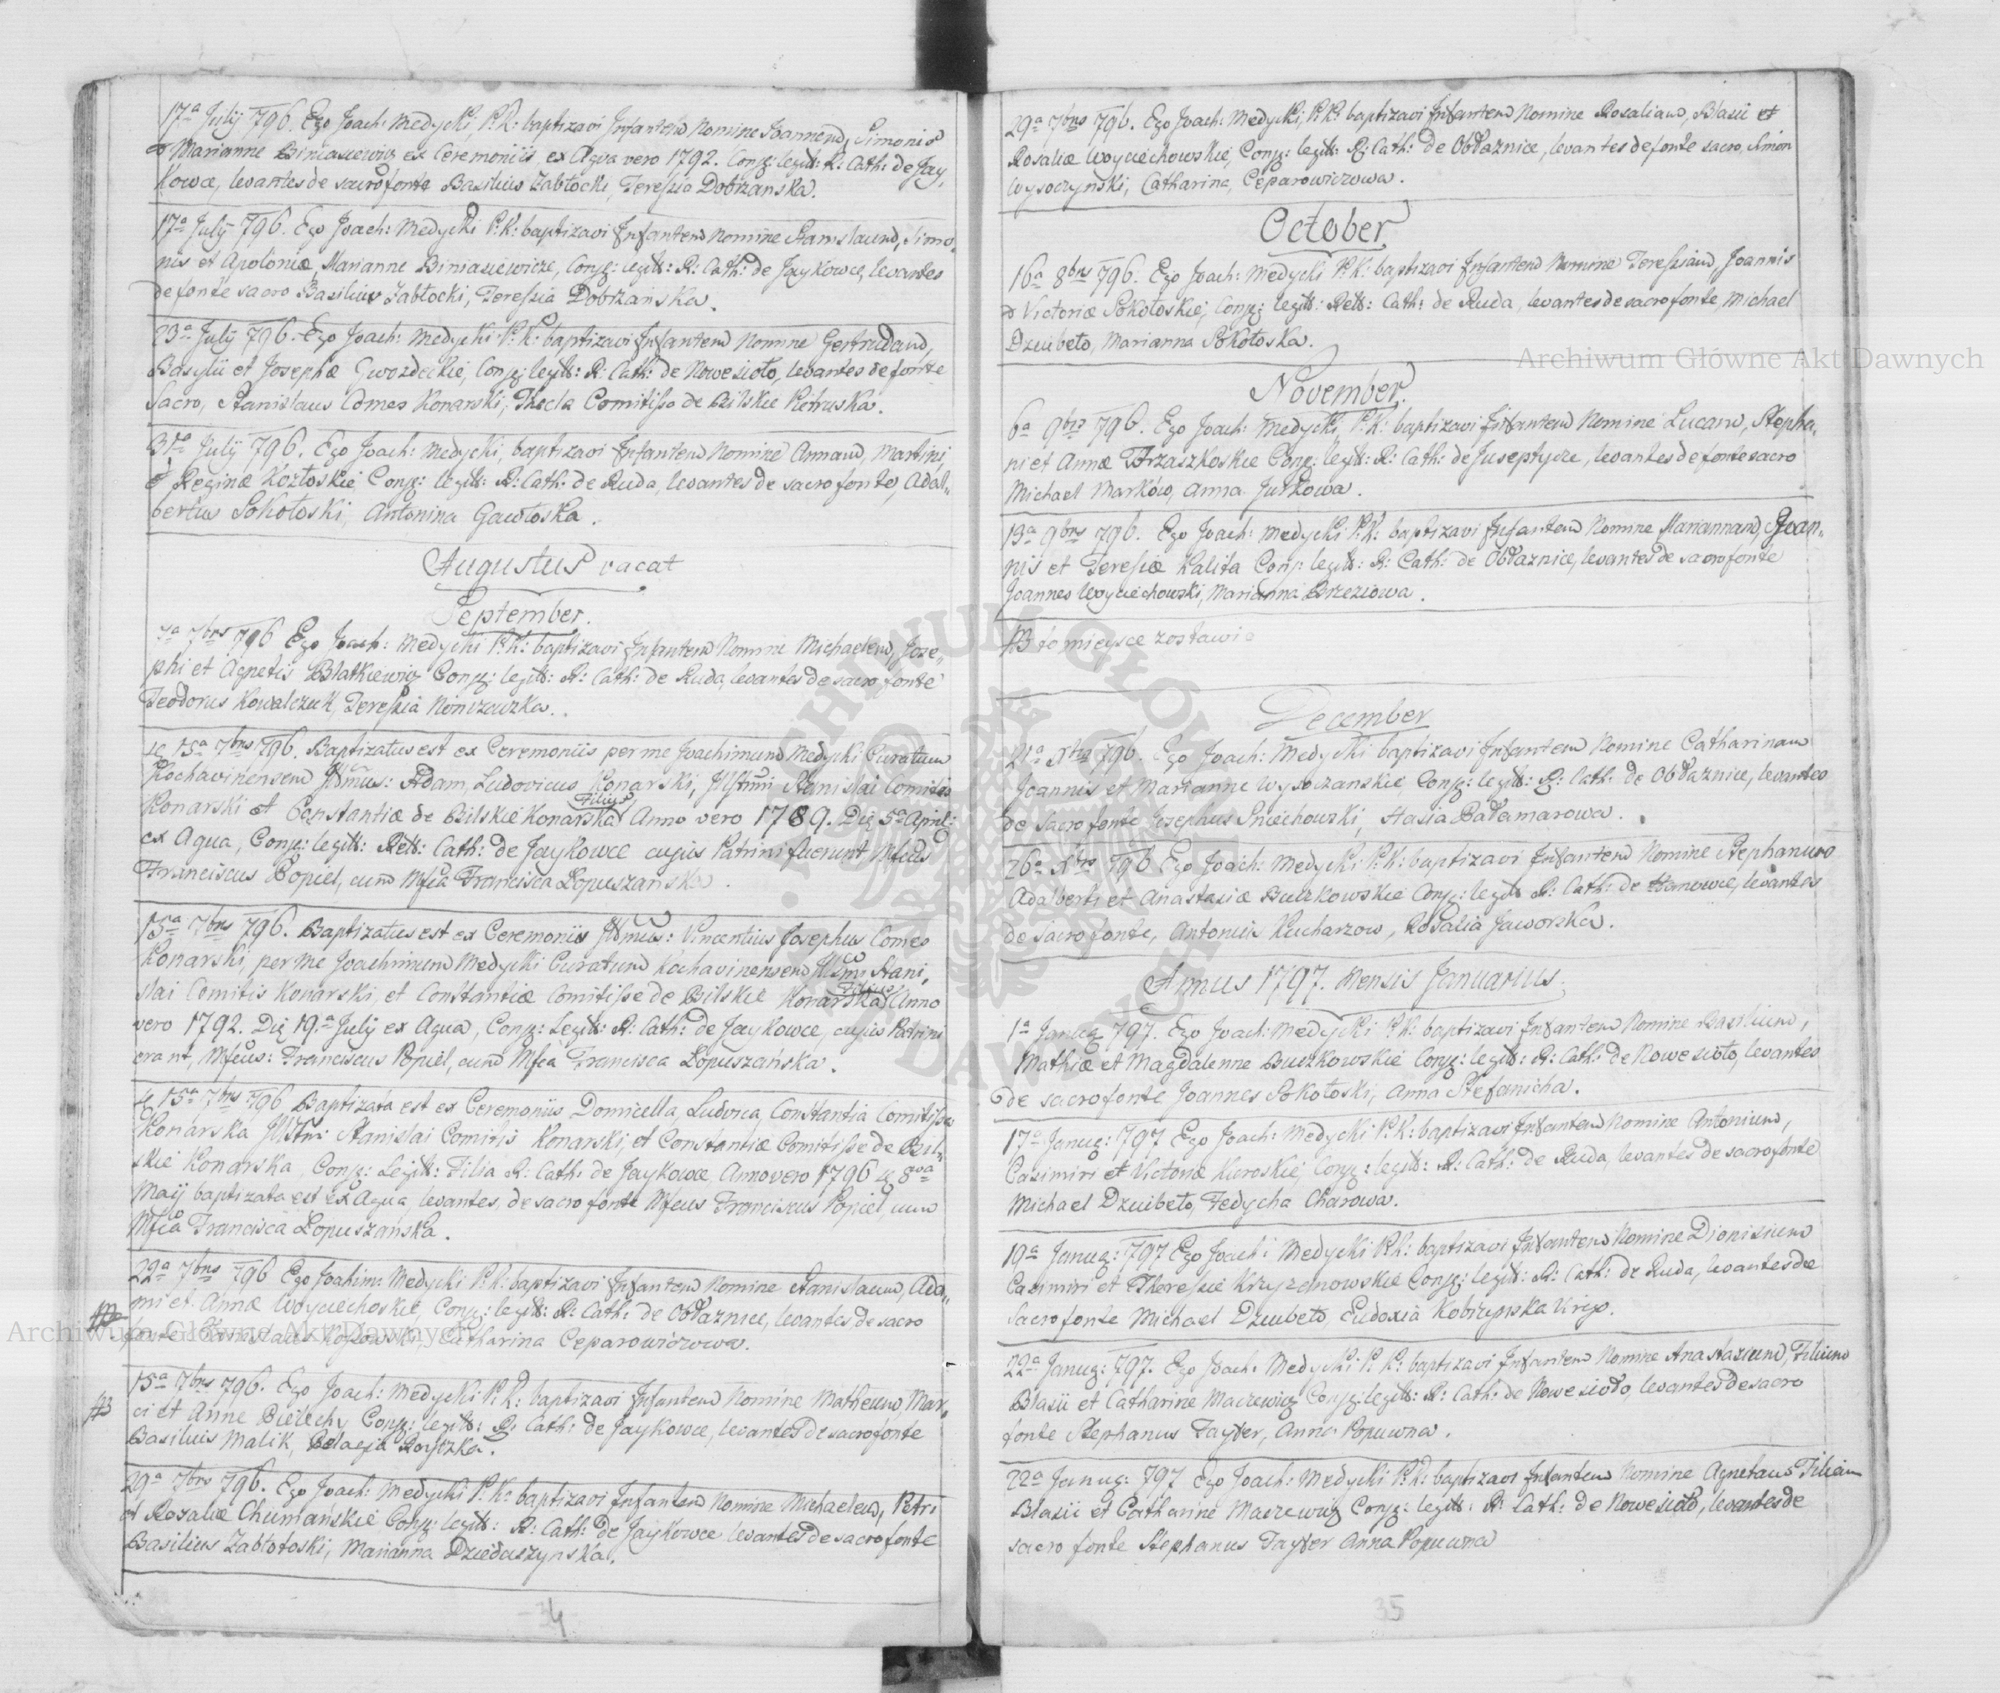 17ª July 796. Ego Joach: Medycki, P.K: baptizavi Infantem Nomine Joannem, Simonis
et Marianne Biniasiewicz ex Ceremoniis, ex Aqva vero 1792. Conjg: legit: R: Cath: de Jay,
kowce, levantes de sacro fonte Basilius Zabłocki, Teressia Dobrzanska.
17ª July 796. Ego Joach: Medycki P.K: baptizavi Infantem Nomine Stanislaum, Simo,
nis et Apoloniæ, Marianne Biniasiewicze, Conjg: legit: R: Cath: de Jaykowce, levantes
de fonte sacro Basilius Zabłocki, Teressia Dobrzańska.
23ª July 796. Ego Joach: Medycki P.K: baptizavi Infantem Nomine Gertrudam,
Basylii et Josephæ Gwozdeckie, Conjg: legit: R: Cath: de Nowesioło, levantes de fonte
Sacro, Stanislaus Comes Konarski, Thecla Comitissa de Bilskie Pietruska.
July 796. Ego Joach: Medycki, baptizavi Infantem Nomine Annam, Martini
et Reginæ Kozłoskie Conjg: legit: R: Cath: de Ruda, levantes de sacro fonte, Adal-
bertus Sokołoski, Antonina Gawłoska.
Augustus vacat
September.
7bris 796 Ego Joach: Medycki P.K: baptizavi Infantem Nomine Michaelem, Jose-
phi et Agnetis Błatkiewicz Conjg: legit: R: Cath: de Ruda, levantes de sacro fonte
Teodorus Kowalczuk, Teressia
15ª 7bris 796. Baptizatus est ex Ceremoniis per me Joachimum Medycki Curatum
Kochavinensem Adam, Ludovicus Konarski, Stanislai Comitis
Filius
Konarski et Constantiæ de Bilskie Konarska Anno vero 1789. Die 5ª April:
ex Aqua, Conjg: legit: Rett: Cath: de Jaykowce cujus Patrini fuerunt Mfcus
Franciscus Popiel, cum Mfca Francisca Łopuszańska.
15ª 7bris 796. Baptizatus est ex Ceremoniis Vincentius Josephus Comes
Konarski, per me Joachimum Medycki Curatum Kochavinensem Stani,
Filius
slai Comitis Konarski, et Constantiæ Comitisse de Bilskie Konarska Anno
vero 1792. Die 19.ª July ex Aqua, Conjg: Legit: R: Cath: de Jaykowce, cujus Patrini
erant, Mfcus: Franciscus Popiel, cum Mfca Francisca Łopuszańska.
15ª 7bris 796 Baptizata est ex Ceremoniis Domicella, Ludvica, Constantia Comitissa
Konarska Stanislai Comitis Konarski, et Constantiæ Comitisse de Bil-
skie Konarska, Conjg: Legit: Filia R: Cath: de Jaykowce Anno vero 1796 8va
Maij baptizata est ex Aqua, levantes, de sacro fonte Mfcus Franciscus Popiel, cum
Mfca Francisca Łopuszańska.
22ª 7bris 796 Ego Joahim: Medycki P.K: baptizavi Infantem Nomine Stanislaum, Ada-
mi et Annæ Woyciechoskie, Conjg: legit: R: Cath: de Obłaznice, levantes de sacro
fonte Stanislaus Catharina Ceparowiczowa.
#3
15ª 7bris 796. Ego Joach: Medycki P.K: baptizavi Infantem Nomine Matheum, Mar-
ci et Anne Conjg: legit: R: Cath: de Jaykowce, levantes de sacro fonte
Basilius Malik,
29ª 7bris 796. Ego Joach: Medycki P.K: baptizavi Infantem Nomine Michaelem, Petri
et Rosaliæ Chumańskie Conjg: legit: R: Cath: de Jaykowce levantes de sacro fonte
Basilius Zabłotoski, Marianna Dzieduszynska.
34
29ª 7bris 796. Ego Joach: Medycki, P.K: baptizavi Infantem Nomine Rosaliam, Blasii et
Rosaliæ Woyciechowskie, Conjg: legit: R: Cath: de Obłaznice, levantes de fonte sacro, Simon
Wysoczynski, Catharina, Ceparowiczowa.
October
16ª 8bris 796. Ego Joach: Medycki P.K: baptizavi Infantem Nomine Teressiam, Joannis
et Victoriæ Sokołoskie, Conjg: legit: Rett: Cath: de Ruda, levantes de sacro fonte, Michael
Dziubeto, Marianna Sokołoska.
November.
6ª 9bris 796. Ego Joach: Medycki, P.K: baptizavi Infantem Nomine Lucam, Stepha,
ni et Annæ Conjg: legit: R: Cath: de Juseptycze, levantes de fonte sacro
Michael Marków, Anna Jurkowa.
13ª 9bris 796. Ego Joach: Medycki P.K: baptizavi Infantem Nomine Mariannam, Joan-
nis et Teresiæ Kalita Conjg: legit: R: Cath: de Obłaznice, levantes de sacro fonte
Joannes Woyciechowski, Marianna Brzeziowa.
#3 to mieysce zostawie
December
21ª Xbris 796. Ego Joach: Medycki baptizavi Infantem Nomine Catharinam
Joannis et Marianne Wysoczanskie, Conjg: legit: R: Cath: de Obłaznice, levantes
de Sacro fonte Josephus Hasia Bałamarowa.
26ª Xbris 796 Ego Joach: Medycki P.K: baptizavi Infantem Nomine Stephanum
Adalberti et Anastasiæ Buczkowskie Conjg: legit R: Cath: de levantes
de Sacro fonte, Antonius Kucharzow, Rosalia Jaworska.
Annus 1797. Mensis Januarius.
1ª Januar: 797. Ego Joach: Medycki P.K: baptizavi Infantem Nomine Basilium,
Mathiæ et Magdalenne Buczkowskie Conjg: legit: R: Cath: de Nowesioło, levantes
de sacro fonte Joannes Sokołoski, Anna Stefanicha.
17ª Januar: 797 Ego Joach: Medycki P.K: baptizavi Infantem Nomine Antonium,
Casimiri et Victoriæ Kuroskie, Conjg: legit: R: Cath: de Ruda, levantes de sacro fonte
Michael Dziubeto, Fedycha Charowa.
19ª Januar: 797 Ego Joach: Medycki P.K: baptizavi Infantem Nomine Dionisium
Casimiri et Theresie Krzyzanowskie Conjg: legit: R: Cath: de Ruda, levantes de
Sacro fonte Michael Dziubeto, Eudoxia Kobrzynska Virgo.
22ª Januar: 797. Ego Joach: Medycki P.K: baptizavi Infantem Nomine Anastasium, Filium
Blasii et Catharine Maczewicz Conjg: legit: R: Cath: de Nowesioło, levantes de sacro
fonte Stephanus Tayter, Anna Popuwna.
22ª Januar: 797 Ego Joach: Medycki P.K: baptizavi Infantem Nomine Agnetam Filiam
Blasii et Catharine Maczewicz Conjg: legit: R: Cath: de Nowesioło, levantes de
sacro fonte Stephanus Tayter Anna Popuwna
35
Archiwum Główne Akt Dawnych
Archiwum Główne Akt Dawnych
ARCHIWUM GŁÓWNE AKT DAWNYCH